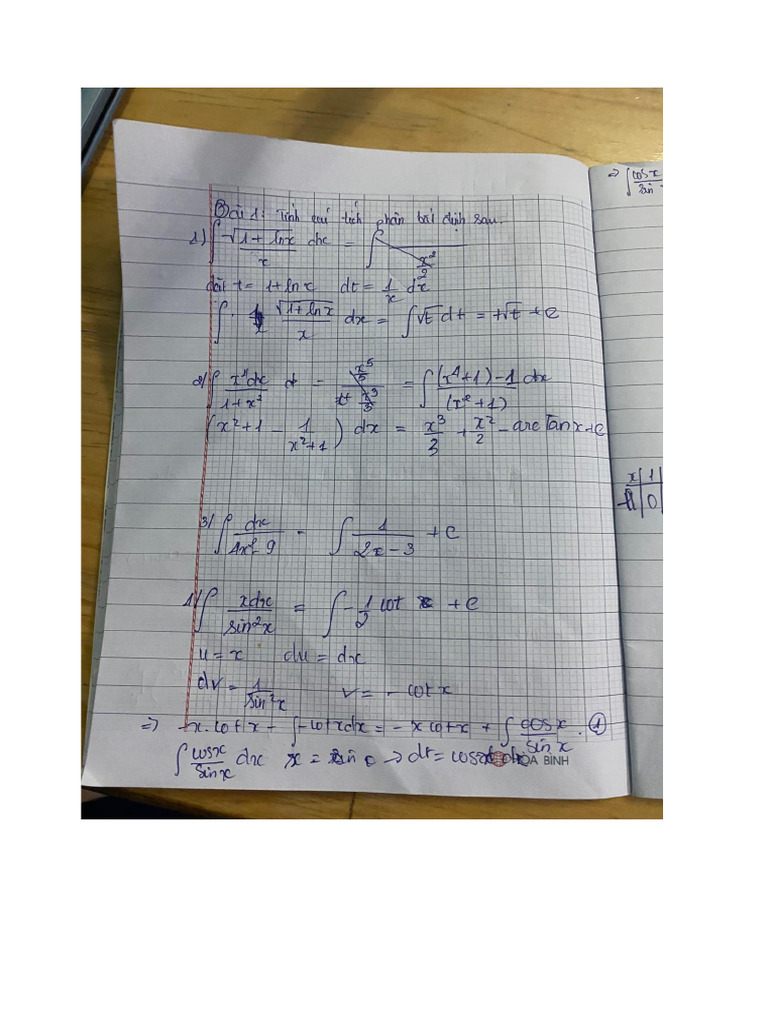 Bài 1: Tính các tích phân bất định sau.
1) ∫ √(1 + lnx)/x dx = ∫ x²/2
đặt t = 1 + ln x dt = 1/x dx
∫ √(1 + ln x)/x dx = ∫ √t dt = t√t + c
2/ ∫ x⁴dx/(1 + x²) = ∫ ((x⁴ + 1) - 1)/(x² + 1) dx
(x² + 1 - 1/(x² + 1)) dx = x³/3 + x²/2 - arc tan x + c
3/ ∫ dx/(4x² - 9) = ∫ 1/(2x - 3) + c
4/ ∫ xdx/sin²x = ∫ - 1/2 cot x + c
u = x du = dx
dv = 1/sin²x v = - cot x
=> -x.cotx - ∫ -cotxdx = - x cotx + ∫ cosx/sinx . ①
∫ cosx/sinx dx = sin -> dt = cosx
HÒA BÌNH
=> ∫ cosx/sin
x | 1
| 0